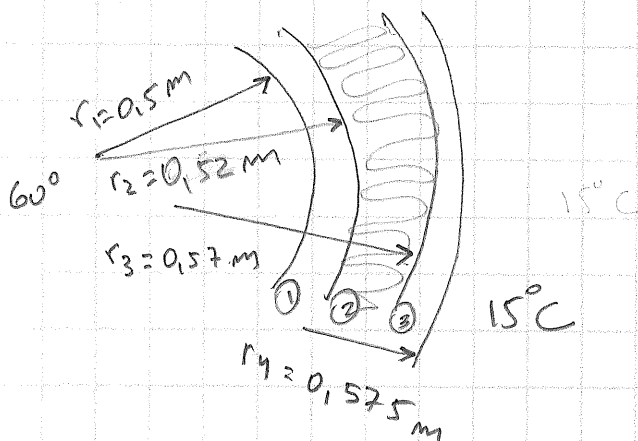 r₁=0,5 m
60°
r₂=0,52 m
15°C
r₃=0,57 m
① ② ③
15°C
r₄=0,575 m